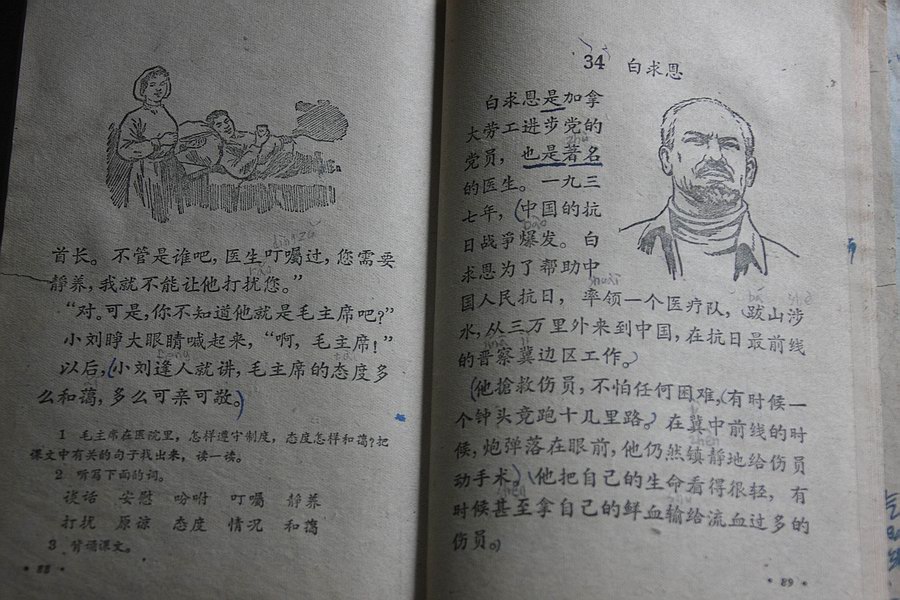 首长。不管是谁吧,医生叮嘱过,您需要
静养,我就不能让他打扰您。”
“对,可是,你不知道他就是毛主席吧?”
小刘睁大眼睛喊起来,“啊,毛主席!”
以后,小刘逢人就讲,毛主席的态度多
么和蔼,多么可亲可敬。
1 毛主席在医院里,怎样遵守制度,态度怎样和蔼?把
课文中有关的句子找出来,读一读。
2 听写下面的词。
谈话 安慰 吩咐 叮嘱 静养
打扰 原谅 态度 情况 和蔼
3 背诵课文。
· 88 ·
34 白求恩
白求恩是加拿
大劳工进步党的
党员,也是著名
的医生。一九三
七年,中国的抗
日战争爆发。白
求恩为了帮助中
国人民抗日,率领一个医疗队,跋山涉
水,从三万里外来到中国,在抗日最前线
的晋察冀边区工作。
他抢救伤员,不怕任何困难,有时候一
个钟头竟跑十几里路。在冀中前线的时
候,炮弹落在眼前,他仍然镇静地给伤员
动手术。他把自己的生命看得很轻,有
时候甚至拿自己的鲜血输给流血过多的
伤员。
· 89 ·